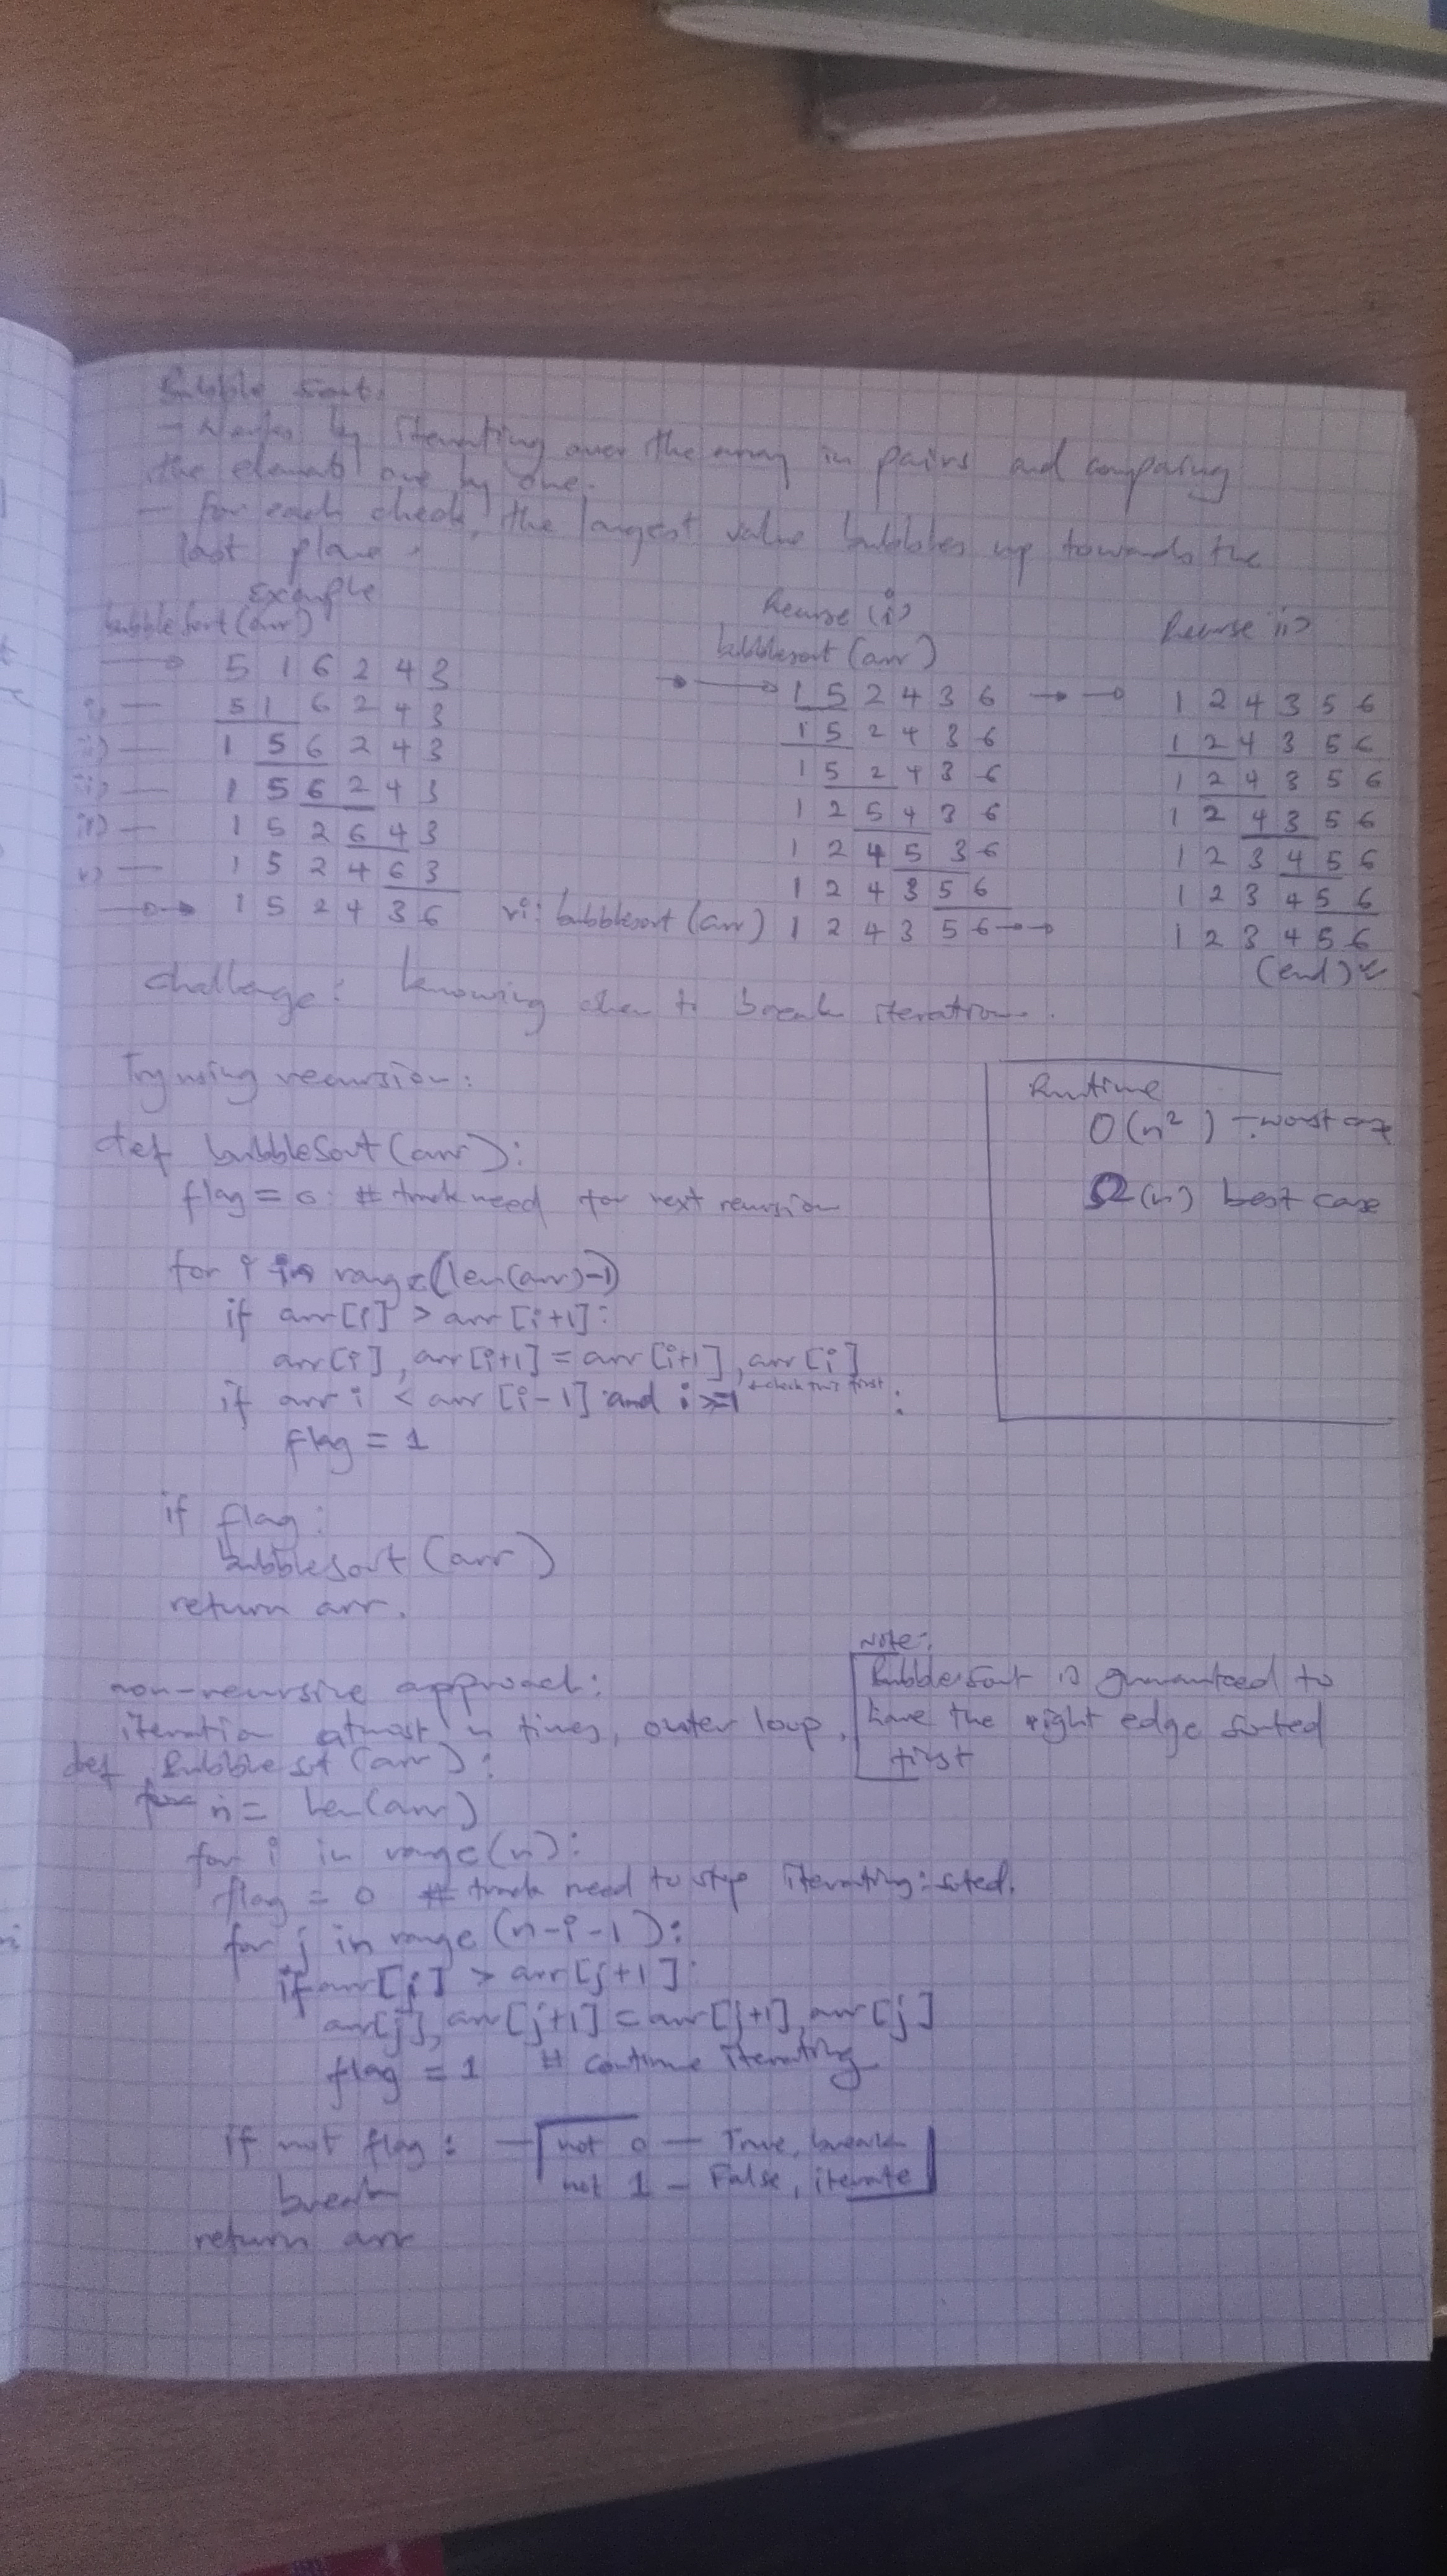 Bubble sort.
- Works by iterating over the array in pairs and comparing
the elements one by one.
- for each check, the largest value bubbles up towards the
last place.
Example
bubbleSort(arr)
5 1 6 2 4 3
i) — 5 1 6 2 4 3
ii) — 1 5 6 2 4 3
iii) — 1 5 6 2 4 3
iv) — 1 5 2 6 4 3
v) — 1 5 2 4 6 3
1 5 2 4 3 6
Recurse (i)
bubblesort (arr)
1 5 2 4 3 6
1 5 2 4 3 6
1 5 2 4 3 6
1 2 5 4 3 6
1 2 4 5 3 6
1 2 4 3 5 6
vi: bubblesort (arr) 1 2 4 3 5 6
Recurse ii)
1 2 4 3 5 6
1 2 4 3 5 6
1 2 4 3 5 6
1 2 4 3 5 6
1 2 3 4 5 6
1 2 3 4 5 6
1 2 3 4 5 6
(end)
Challenge: knowing when to break iteration.
Try using recursion:
def bubbleSort(arr):
flag = 0 # track need for next recursion
for i in range(len(arr)-1)
if arr[i] > arr[i+1]:
arr[i], arr[i+1] = arr[i+1], arr[i]
if arr i < arr [i-1] and i>=1 check this first :
flag = 1
if flag:
bubblesort (arr)
return arr.
Runtime
O(n²) - worst case
Ω(n) best case
non-recursive approach:
iteration atmost n times, outer loop.
Note:
Bubblesort is guaranteed to
have the right edge sorted
first
def Bubblesort (arr):
n = len(arr)
for i in range(n):
flag = 0 # track need to stop iterating: sorted.
for j in range (n-i-1):
if arr[j] > arr[j+1]:
arr[j], arr[j+1] = arr[j+1], arr[j]
flag = 1 # continue iterating
if not flag: — not 0 — True, break
not 1 - False, iterate
break
return arr